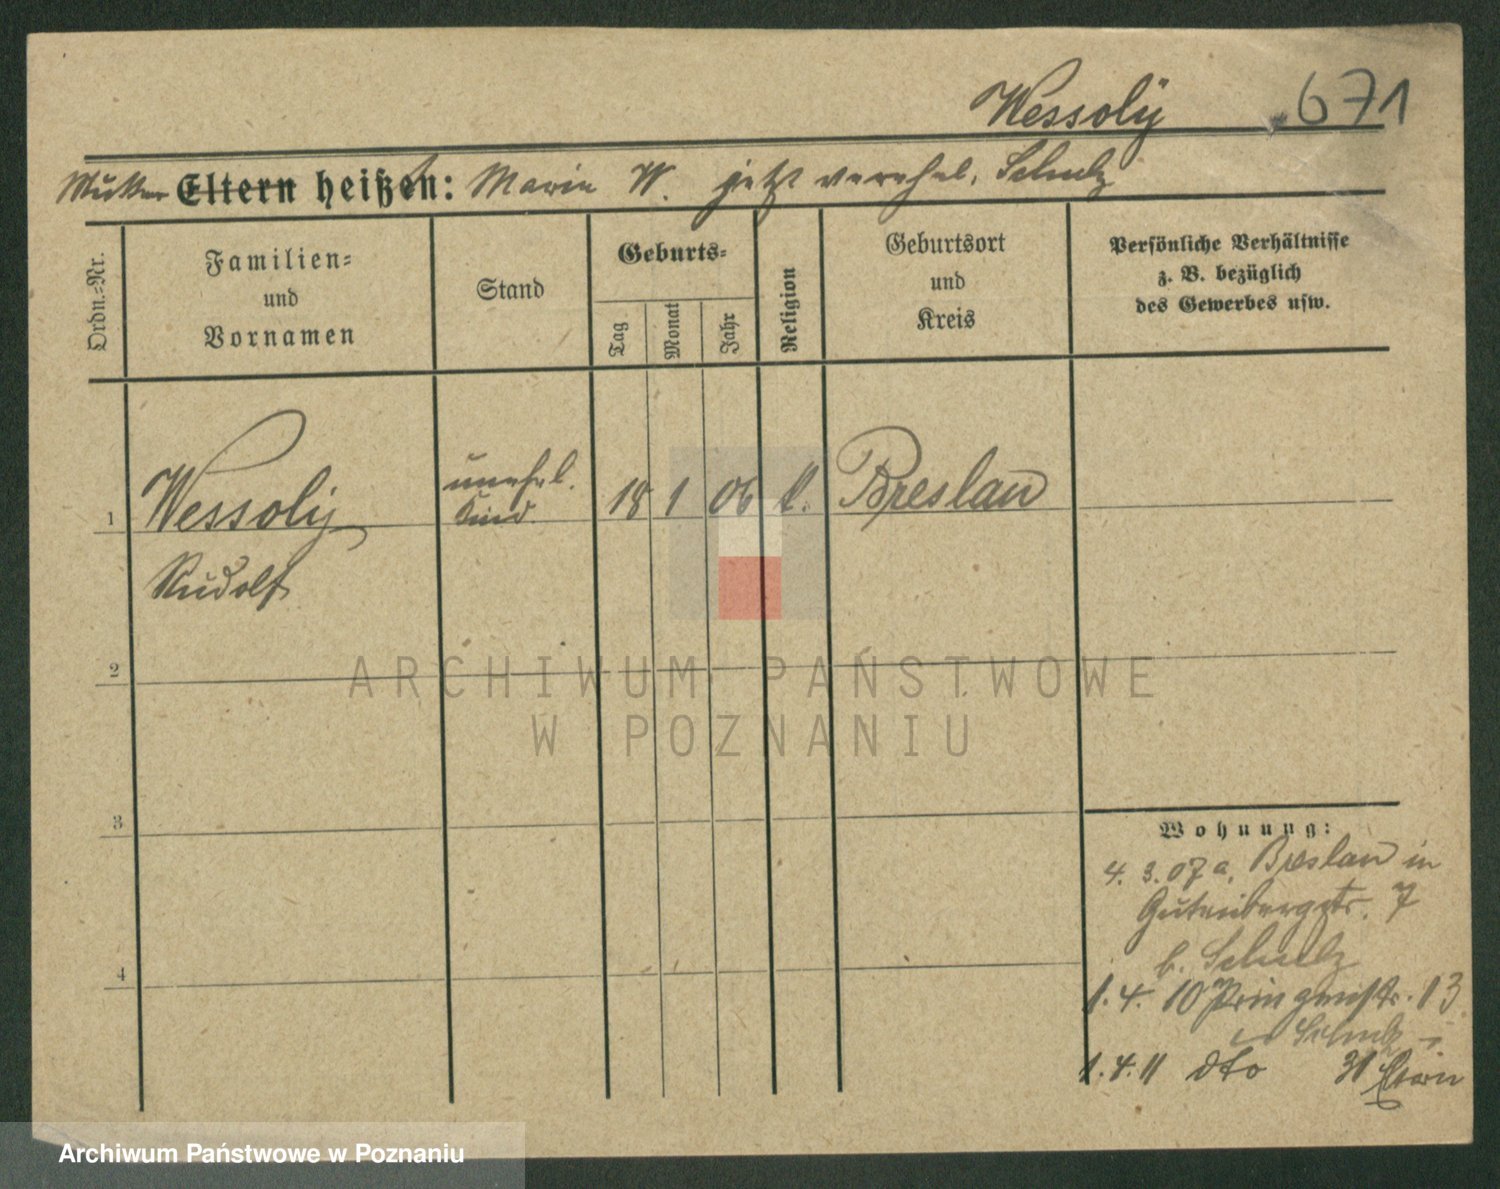 Wessolÿ 671
Mutter Eltern heißen: Marie W. jetzt verehel. Schulz
Ordn.-Nr.
Familien-
und
Vornamen
Stand
Geburts-
Tag
Monat
Jahr
Religion
Geburtsort
und
Kreis
Persönliche Verhältnisse
z. B. bezüglich
des Gewerbes usw.
1 Wessolÿ unehel. Kind. 18 1 06 k. Breslau
Rudolf
2
ARCHIWUM PAŃSTWOWE
W POZNANIU
3
4
Wohnung:
4. 3. 07 a. Breslau in
Gutenbergstr. 7
b. Schulz
1. 4. 10 13
Schulz
1. 4. 11 dto 31 Eltern
Archiwum Państwowe w Poznaniu